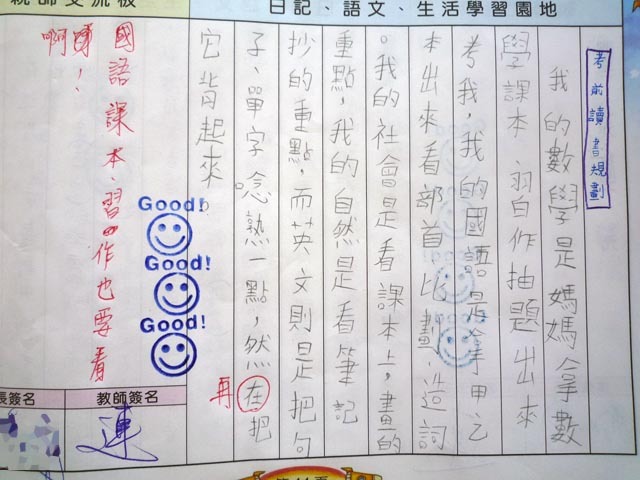 日記、語文、生活學習園地
親師交流板
考前讀書規劃
我的數學是媽媽拿數
學課本、習作抽題出來
考我，我的國語是拿甲乙
本出來看部首比劃、造詞
。我的社會是看課本上，畫的
重點，我的自然是看筆記
抄的重點，而英文則是把句
子、單字唸熟一點，然在把
它背起來。
再
國語課本、習作也要看
啊！
Good!
Good!
Good!
教師簽名
長簽名
連